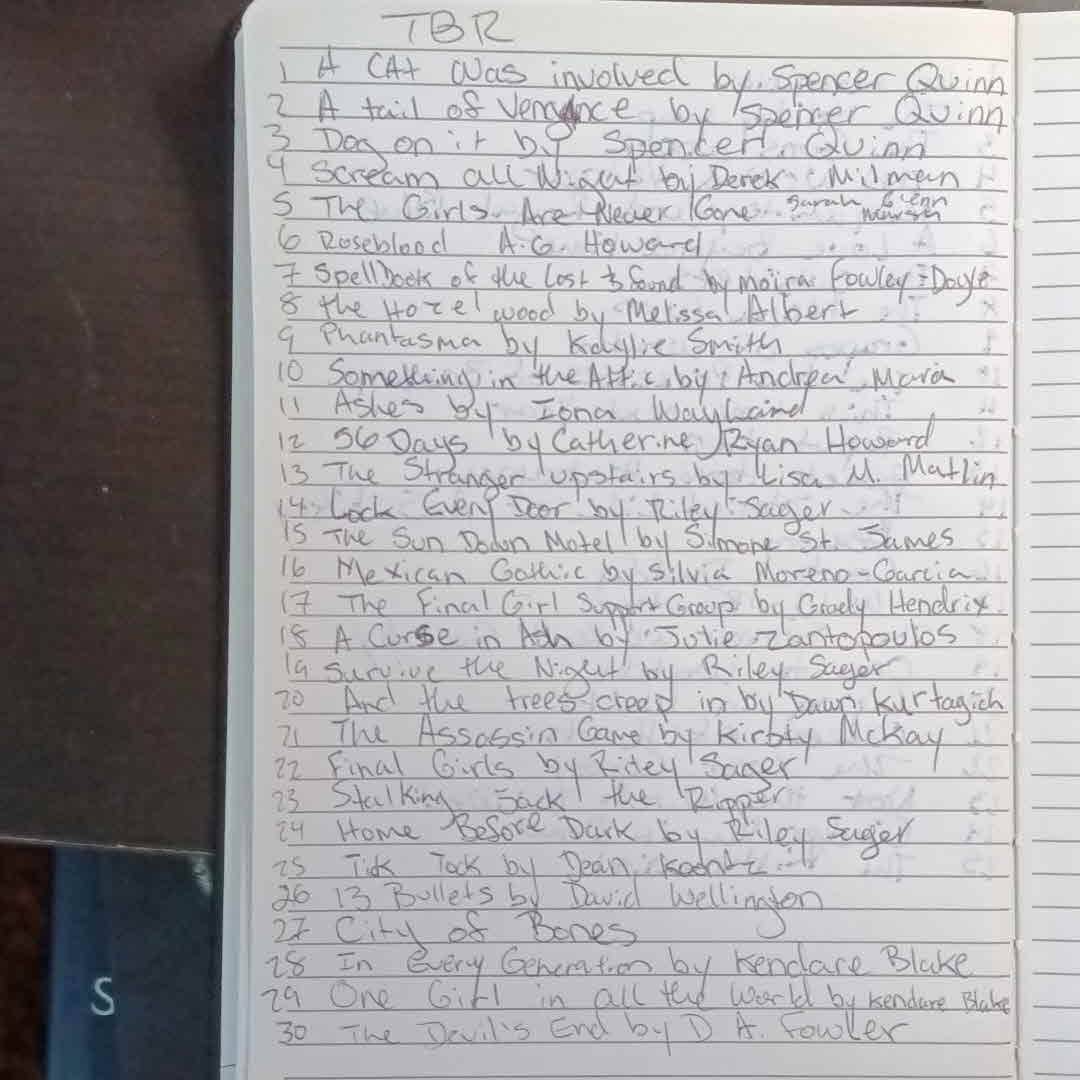 TBR
1 A CAt Was involved by Spencer Quinn
2 A tail of vengance by Spencer Quinn
3 Dog on it by Spencer Quinn
4 Scream all Night by Derek Milman
5 The Girls Are Never Gone Sarah Glenn Marsh
6 Roseblood A.G. Howard
7 Spellbook of the Lost & found by moïra Fowley-Doyle
8 the Hazel wood by Melissa Albert
9 Phantasma by Kaylie Smith
10 Something in the Attic by Andrea Mara
11 Ashes by Iona Wayland
12 56 Days by Catherine Ryan Howard
13 The Stranger upstairs by Lisa M. Matlin
14 Lock Every Door by Riley Sager
15 The Sun Down Motel by Simone St. James
16 Mexican Gothic by Silvia Moreno-Garcia
17 The Final Girl Support Group by Grady Hendrix
18 A Curse in Ash by Julie Zantopoulos
19 Survive the Night by Riley Sager
20 And the trees creep in by Dawn Kurtagich
21 The Assassin Game by Kirsty Mckay
22 Final Girls by Riley Sager
23 Stalking Jack the Ripper
24 Home Before Dark by Riley Sager
25 Tick Tock by Dean Koontz
26 13 Bullets by David Wellington
27 City of Bones
28 In Every Generation by Kendare Blake
29 One Girl in all the World by Kendare Blake
30 The Devil's End by D A. Fowler
S